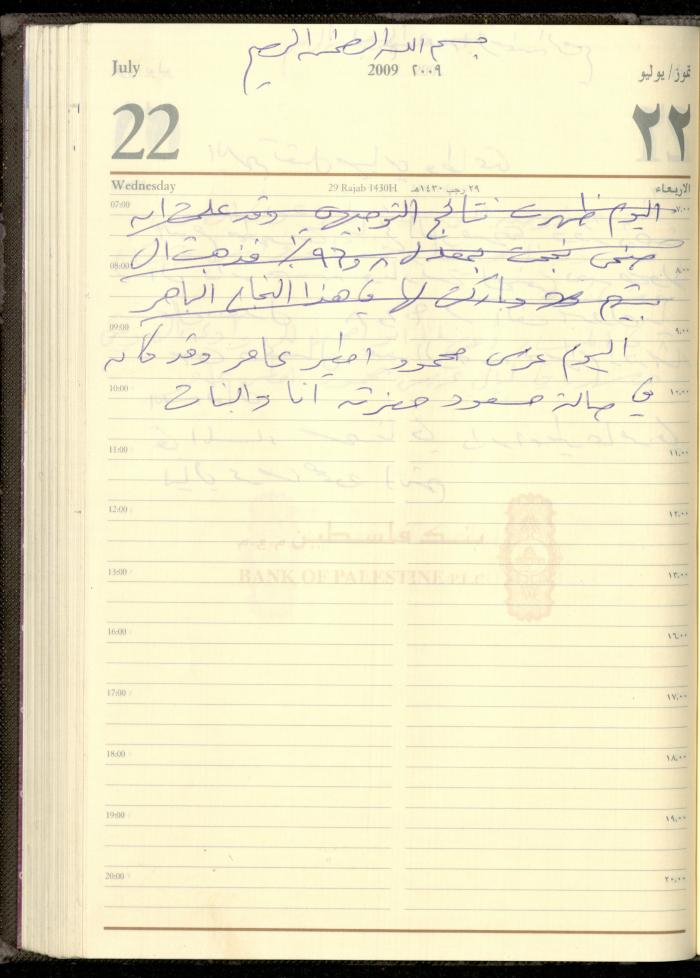 بسم الله الرحمن الرحيم
July 2009 ٢٠٠٩ تموز/يوليو
22 ٢٢
Wednesday 29 Rajab 1430H ٢٩ رجب ١٤٣٠هـ الاربعاء
07:00 ٧,٠٠
اليوم ظهرت نتائج التوجيهي وقد علمت ان
نجحت بمعدل ٨ و٩٦٪ فذهبت ال
08:00 ٨,٠٠
وباركت لها في هذا النجاح الباهر
09:00 ٩,٠٠
اليوم عرس محمود امطير عامر وقد كان
10:00 ١٠,٠٠
في صالة مسعود حضرته أنا والبنات
11:00 ١١,٠٠
12:00 ١٢,٠٠
بنك فلسطين
BANK OF PALESTINE PLC
13:00 ١٣,٠٠
16:00 ١٦,٠٠
17:00 ١٧,٠٠
18:00 ١٨,٠٠
19:00 ١٩,٠٠
20:00 ٢٠,٠٠